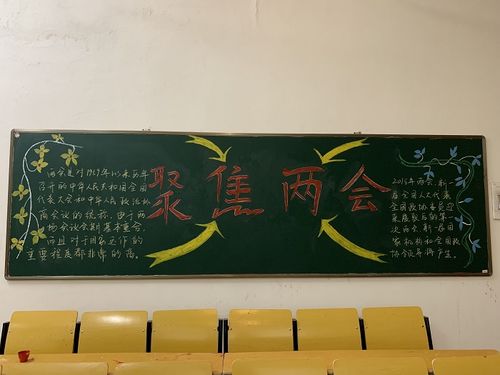 两会是对1959年以来历年
召开的中华人民共和国全国
代表大会和中华人民政治协
商会议的统称。由于两
场会议会期基本重合，
而且对于国家运作的
重要程度都非常的高。
聚焦两会
2018年两会，新一
届全国人大代表
全国政协委员迎
来履职后的第一
次两会，新一届国
家机构和全国政
协领导将产生。